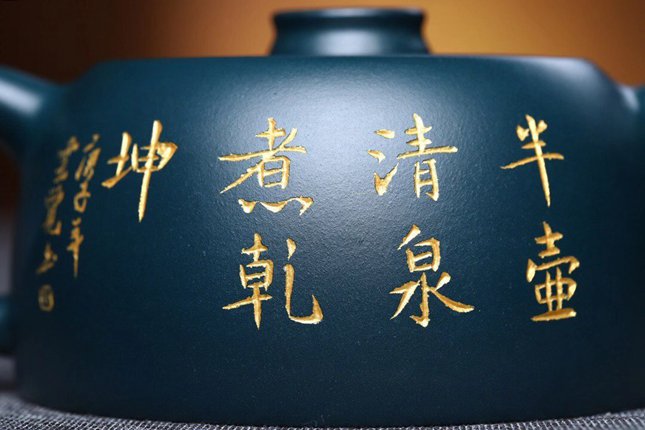 半壶
清泉
煮乾
坤
庚子年